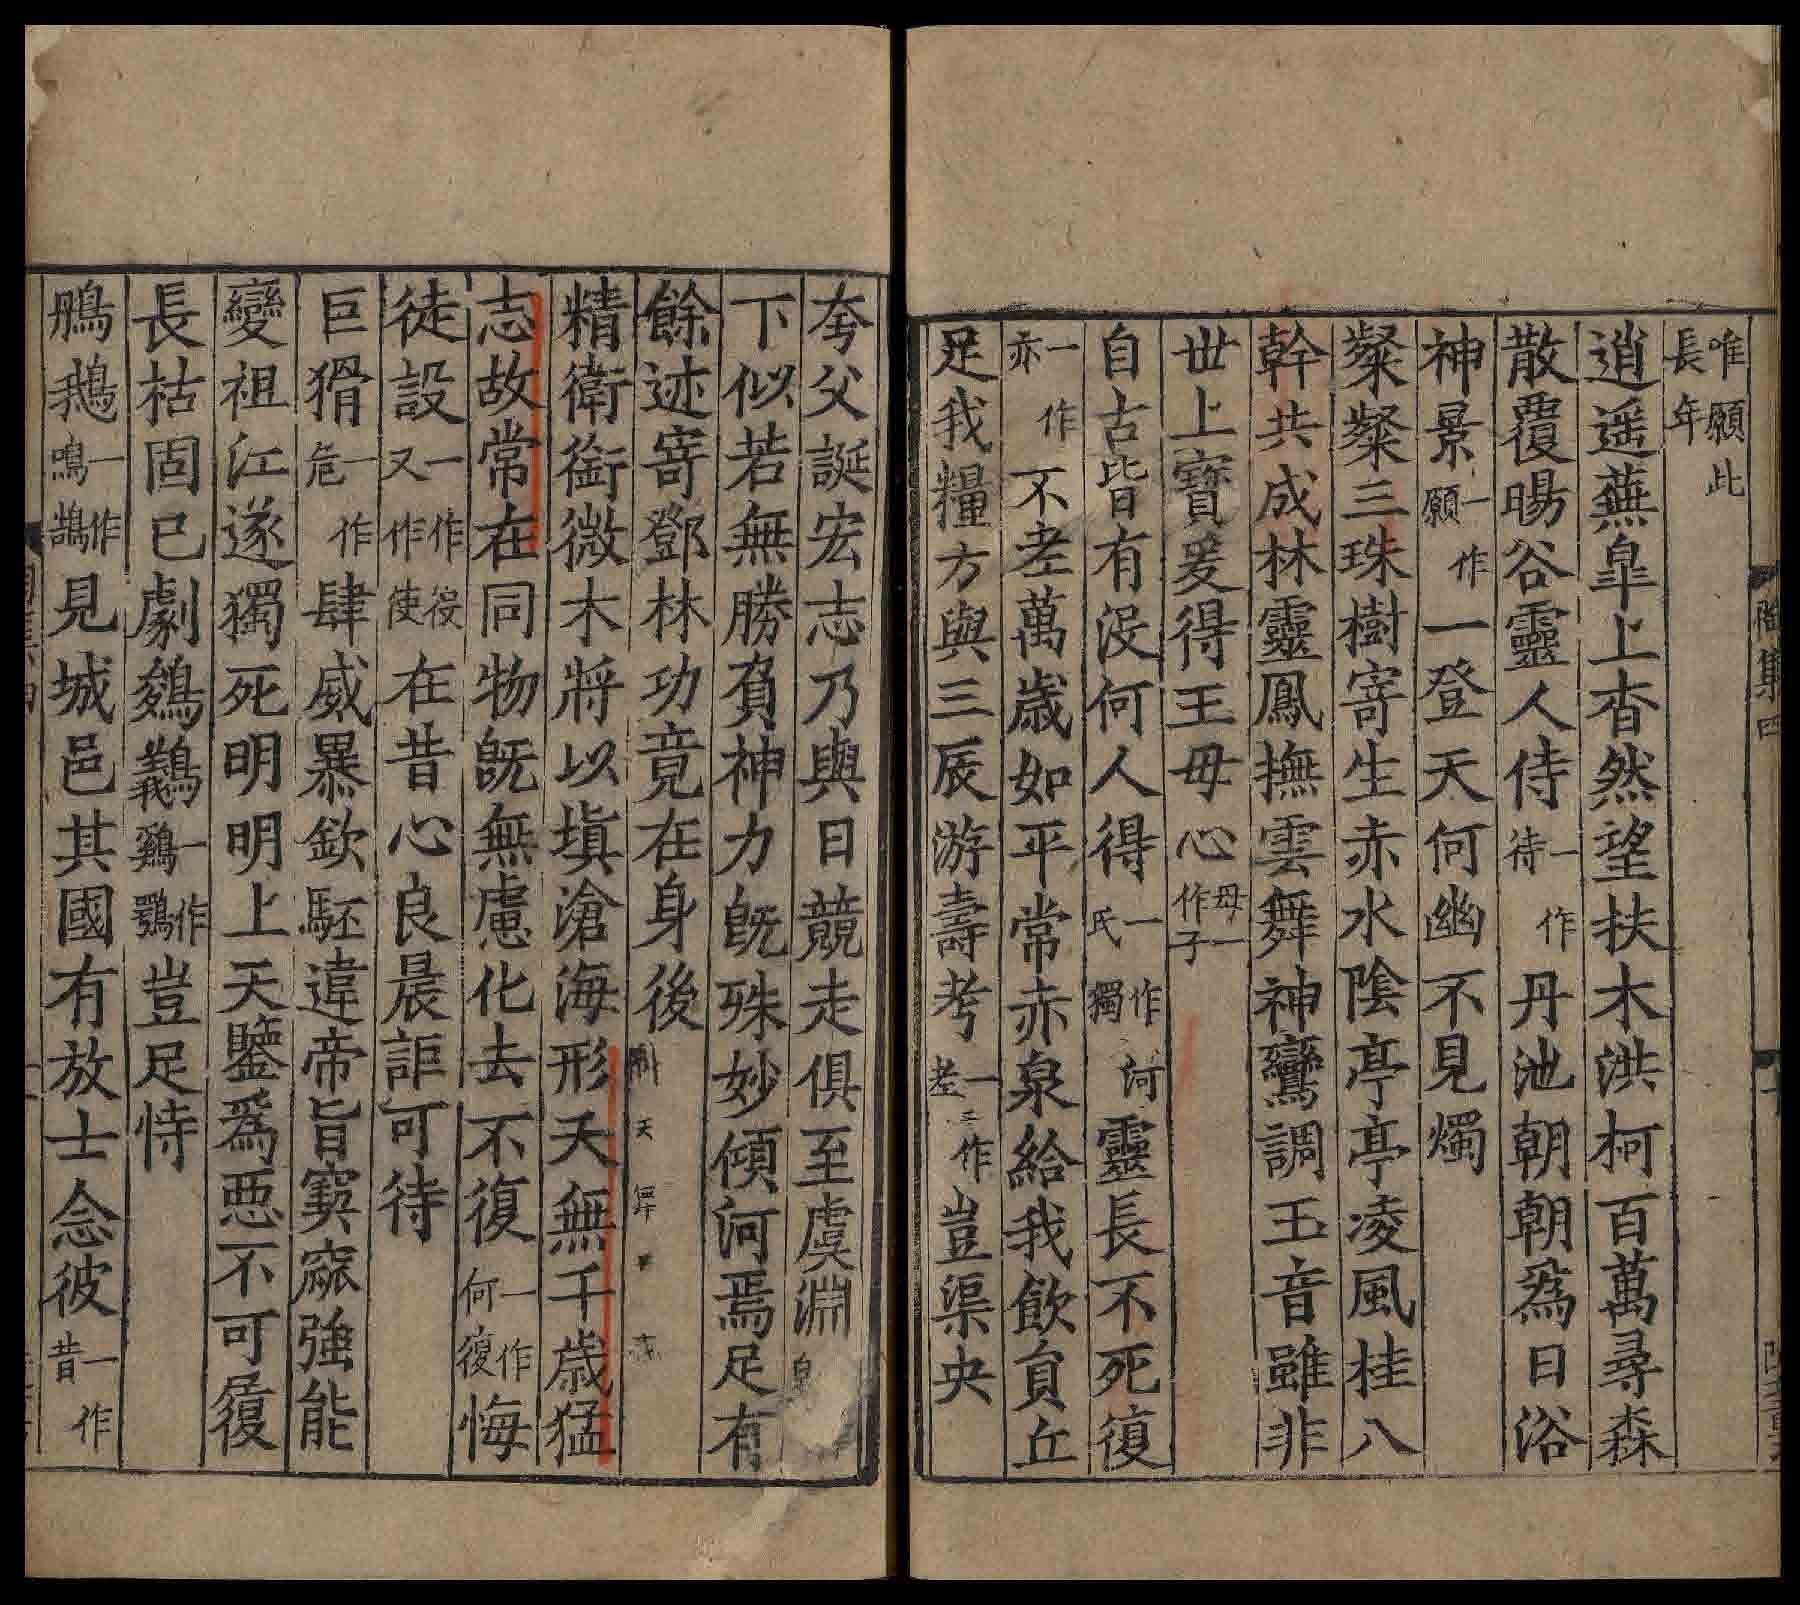 唯願此長年
逍遥蕪臯上杳然望扶木洪柯百萬尋森
散覆暘谷靈人侍一作待丹池朝朝爲日浴
神景一作願一登天何幽不見燭
粲粲三珠樹寄生赤水隂亭亭凌風桂八
幹共成林靈鳳撫雲舞神鸞調玉音雖非
世上寶爰得王母心母一作子
自古皆有没何人得一作氏獨河靈長不死復
一作亦不老萬歳如平常赤泉給我飲負丘
足我糧方與三辰游壽考一作老豈渠央
陶集四
夸父誕宏志乃與日競走俱至虞淵
下似若無勝負神力旣殊妙傾河焉足有
餘迹寄鄧林功竟在身後
精衛銜微木將以塡滄海形夭無千歳猛
志故常在同物旣無慮化去不復一作何復悔
徒設一作役又作使在昔心良晨詎可待
巨猾一作危肆威暴欽駓違帝旨窫窳強能
變祖江遂獨死明明上天鑒爲惡不可履
長枯固已劇鵕鵝一作鵕鶚豈足恃
鵃鵝一作鳴鵠見城邑其國有放士念彼一作昔